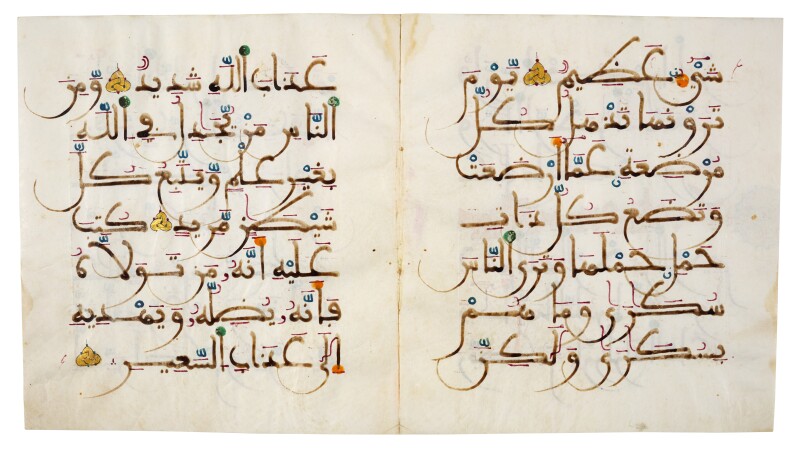 شَيْءٌ عَظِيمٌ يَوْمَ
تَرَوْنَهَا تَذْهَلُ كُلُّ
مُرْضِعَةٍ عَمَّا أَرْضَعَتْ
وَتَضَعُ كُلُّ ذَاتِ
حَمْلٍ حَمْلَهَا وَتَرَى النَّاسَ
سُكَرَىٰ وَمَا هُم
بِسُكَرَىٰ وَلَكِنَّ
عَذَابَ اللَّهِ شَدِيدٌ وَمِنَ
النَّاسِ مَنْ يُجَدِلُ فِي اللَّهِ
بِغَيْرِ عِلْمٍ وَيَتَّبِعُ كُلَّ
شَيْطَنٍ مَّرِيدٍ كُتِبَ
عَلَيْهِ أَنَّهُ مَن تَوَلَّاهُ
فَأَنَّهُ يُضِلُّهُ وَيَهْدِيهِ
إِلَىٰ عَذَابِ السَّعِيرِ